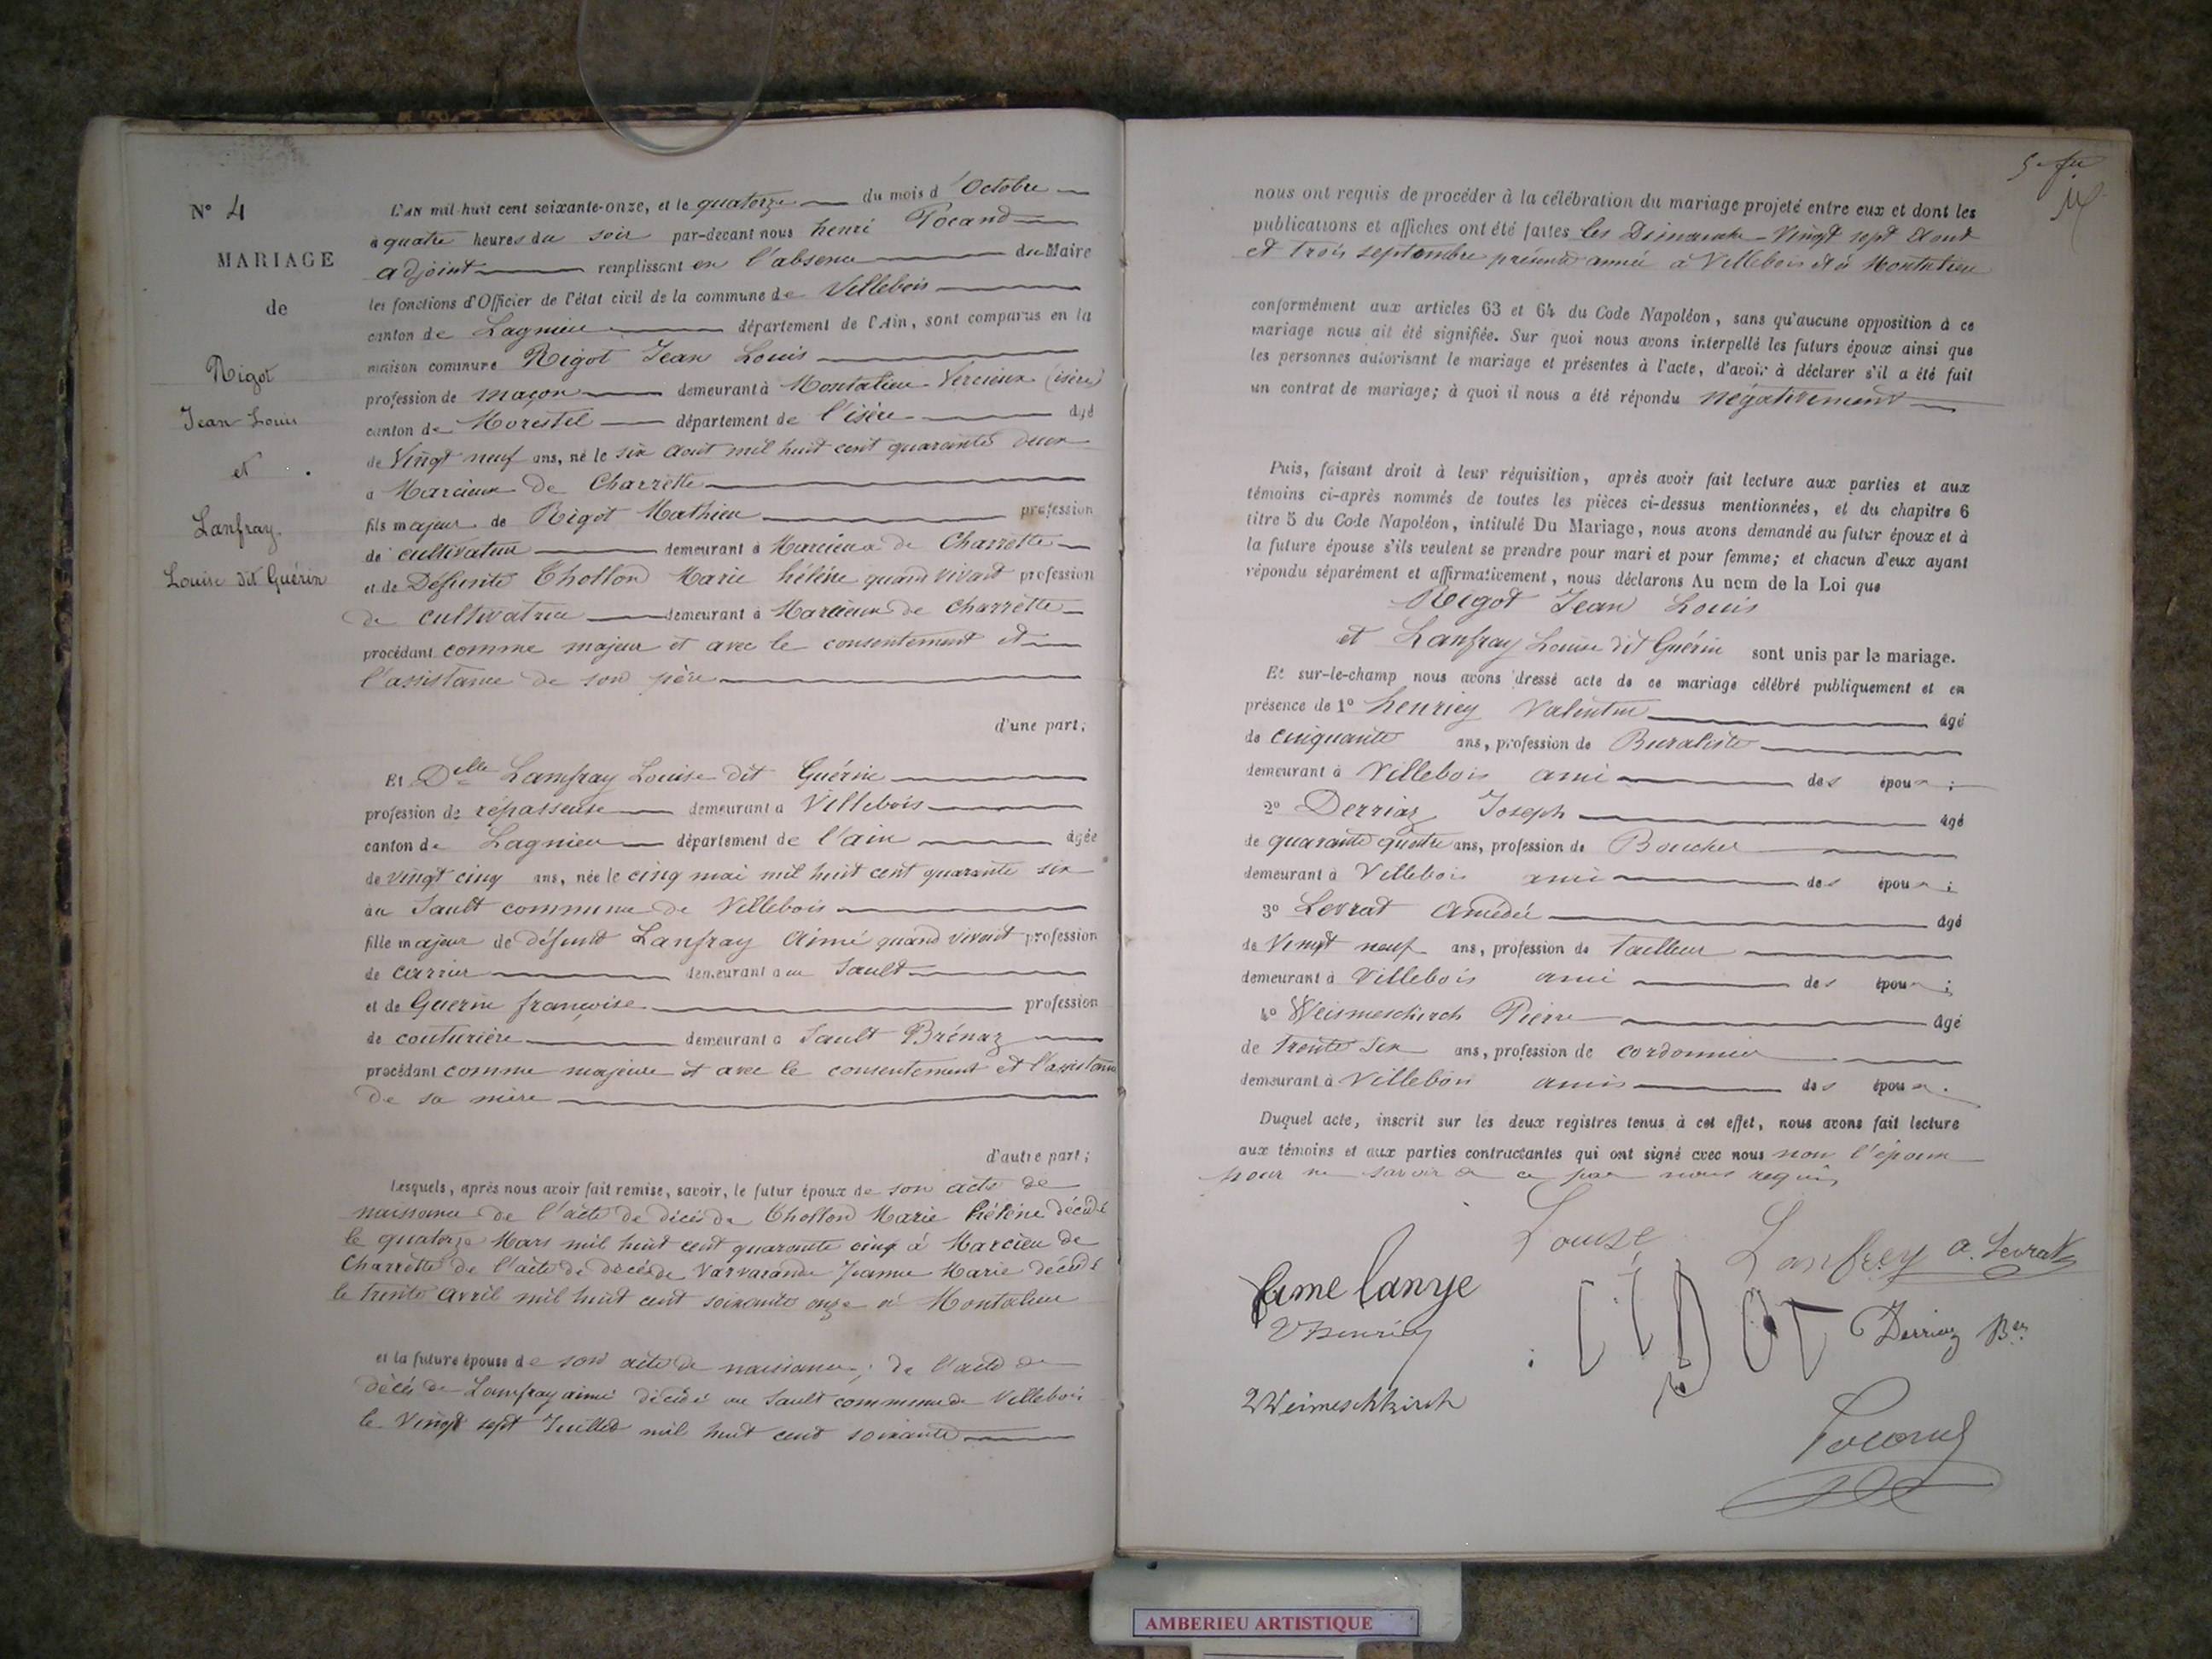 N° 4
MARIAGE
de
Rigot
Jean Louis
et
Lanfray
Louise dit Guérin
L'AN mil-huit cent soixante-onze, et le quatorze du mois d'Octobre
à quatre heures du soir par-devant nous henri Pocand
adjoint remplissant en l'absence du Maire
les fonctions d'Officier de l'état civil de la commune de Villebois
canton de Lagnieu département de l'Ain, sont comparus en la
maison commune Rigot Jean Louis
profession de maçon demeurant à Montalieu Vercieux (isère)
canton de Morestel département de l'isère âgé
de Vingt neuf ans, né le six Aout mil huit cent quarante deux
a Marcieux de Charrette
fils majeur de Rigot Mathieu profession
de cultivateur demeurant à Marcieux de Charrette
et de Défunte Thollon Marie hélène quand vivait profession
de cultivatrice demeurant à Marcieux de Charrette
procédant comme majeur et avec le consentement et
l'assistance de son père
d'une part;
Et Delle Lanfray Louise dit Guérin
profession de répasseuse demeurant a Villebois
canton de Lagnieu département de l'ain âgée
de vingt cinq ans, née le cinq mai mil huit cent quarante six
au Sault commune de Villebois
fille majeur de défunt Lanfray Aimé quand vivait profession
de carrier demeurant a au Sault
et de Guerin françoise profession
de couturière demeurant a Sault Brénaz
procédant comme majeure et avec le consentement et l'assistance
de sa mère
d'autre part;
Lesquels, après nous avoir fait remise, savoir, le futur époux de son acte de
naissance de l'acte de décès de Thollon Marie hélène décédé
le quatorze Mars mil huit cent quarante cinq à Marcieu de
Charrette de l'acte de décès de Varvarande Jeanne Marie décédé
le trente avril mil huit cent soixante onze à Montalieu
et la future épouse de son acte de naissance; de l'acte de
décès de Lanfray aimé décédé au Sault commune de Villebois
le Vingt sept Juillet mil huit cent soixante
nous ont requis de procéder à la célébration du mariage projeté entre eux et dont les
publications et affiches ont été faites les Dimanche Vingt sept Aout
et trois septembre présente année à Villebois et à Montalieu
conformément aux articles 63 et 64 du Code Napoléon, sans qu'aucune opposition à ce
mariage nous ait été signifiée. Sur quoi nous avons interpellé les futurs époux ainsi que
les personnes autorisant le mariage et présentes à l'acte, d'avoir à déclarer s'il a été fait
un contrat de mariage; à quoi il nous a été répondu négativement
Puis, faisant droit à leur réquisition, après avoir fait lecture aux parties et aux
témoins ci-après nommés de toutes les pièces ci-dessus mentionnées, et du chapitre 6
titre 5 du Code Napoléon, intitulé Du Mariage, nous avons demandé au futur époux et à
la future épouse s'ils veulent se prendre pour mari et pour femme; et chacun d'eux ayant
répondu séparément et affirmativement, nous déclarons Au nom de la Loi que
Rigot Jean Louis
et Lanfray Louise dit Guérin sont unis par le mariage.
Et sur-le-champ nous avons dressé acte de ce mariage célébré publiquement et en
présence de 1° henriey Valentin âgé
de cinquante ans, profession de Buraliste
demeurant à Villebois ami des époux;
2° Derriaz Joseph âgé
de quarante quatre ans, profession de Boucher
demeurant à Villebois ami des époux;
3° Levrat Amédée âgé
de Vingt neuf ans, profession de tailleur
demeurant à Villebois ami des époux;
4° Weismeschirch Pierre âgé
de trente six ans, profession de cordonnier
demeurant à Villebois amis des époux.
Duquel acte, inscrit sur les deux registres tenus à cet effet, nous avons fait lecture
aux témoins et aux parties contractantes qui ont signé avec nous non l'époux
pour ne savoir de ce par nous requis
Louise Lanfrey a. Levrat
V henriey
Derriaz Ber
Weimeschkirch
Pocand
AMBERIEU ARTISTIQUE